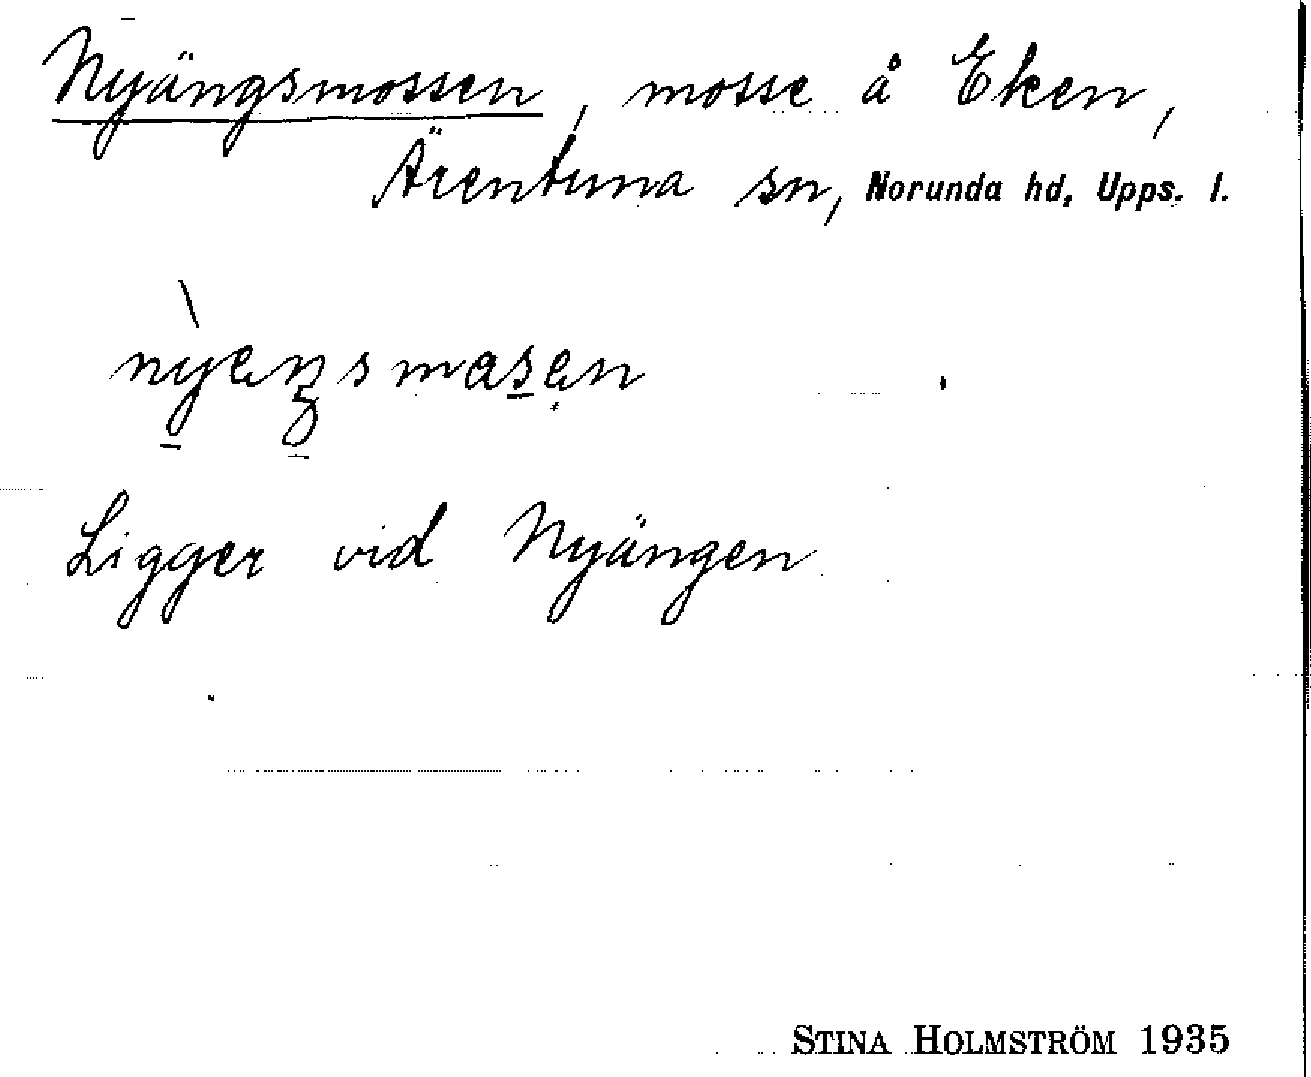 Nyängsmossen, mosse å Eken,
Ärentuna sn, Norunda hd, Upps. l.
Ligger vid Nyängen
STINA HOLMSTRÖM 1935